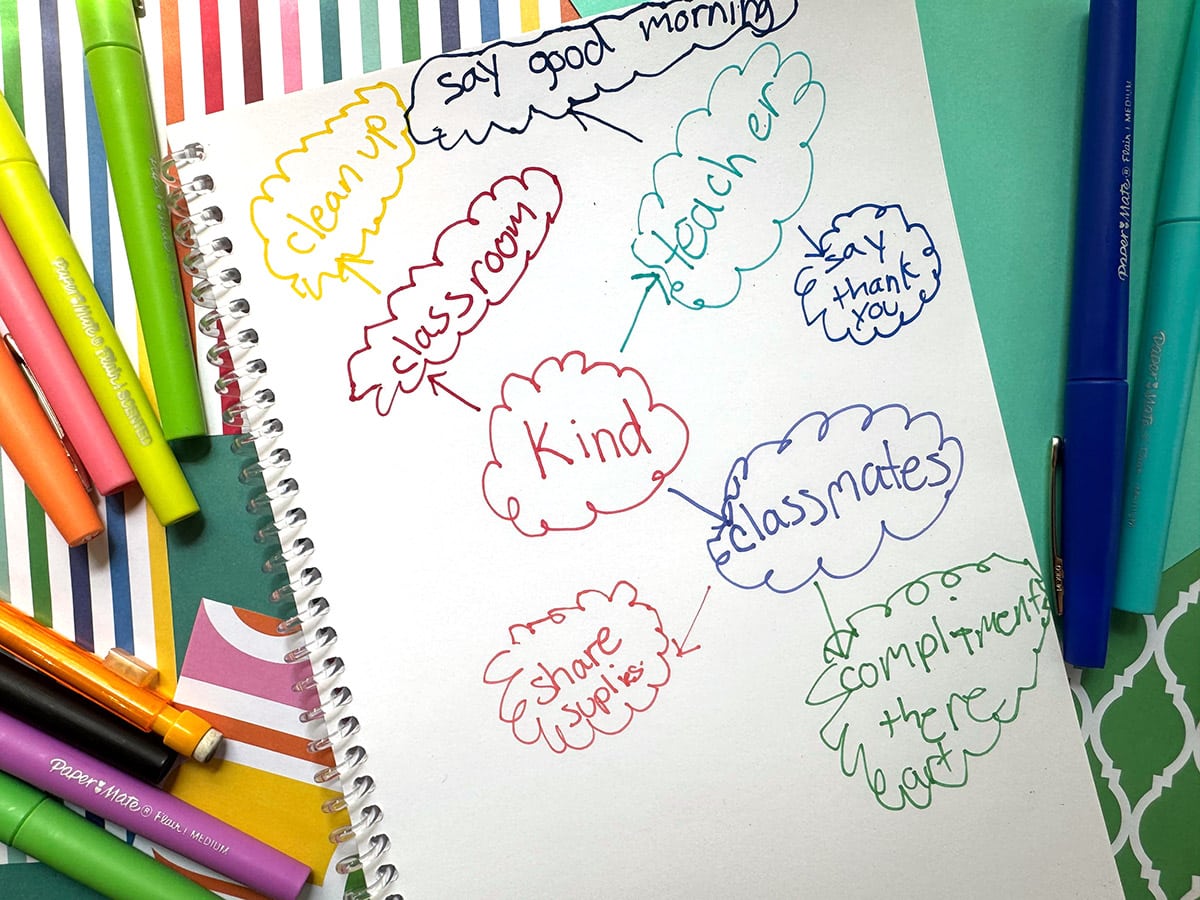 say good morning
clean up
teacher
classroom
say
thank
you
Kind
classmates
share
suplies
compliment
there
art
Paper Mate® Flair! SCENTED
Paper Mate® Flair! MEDIUM
Paper Mate® Flair! MEDIUM
Paper Mate